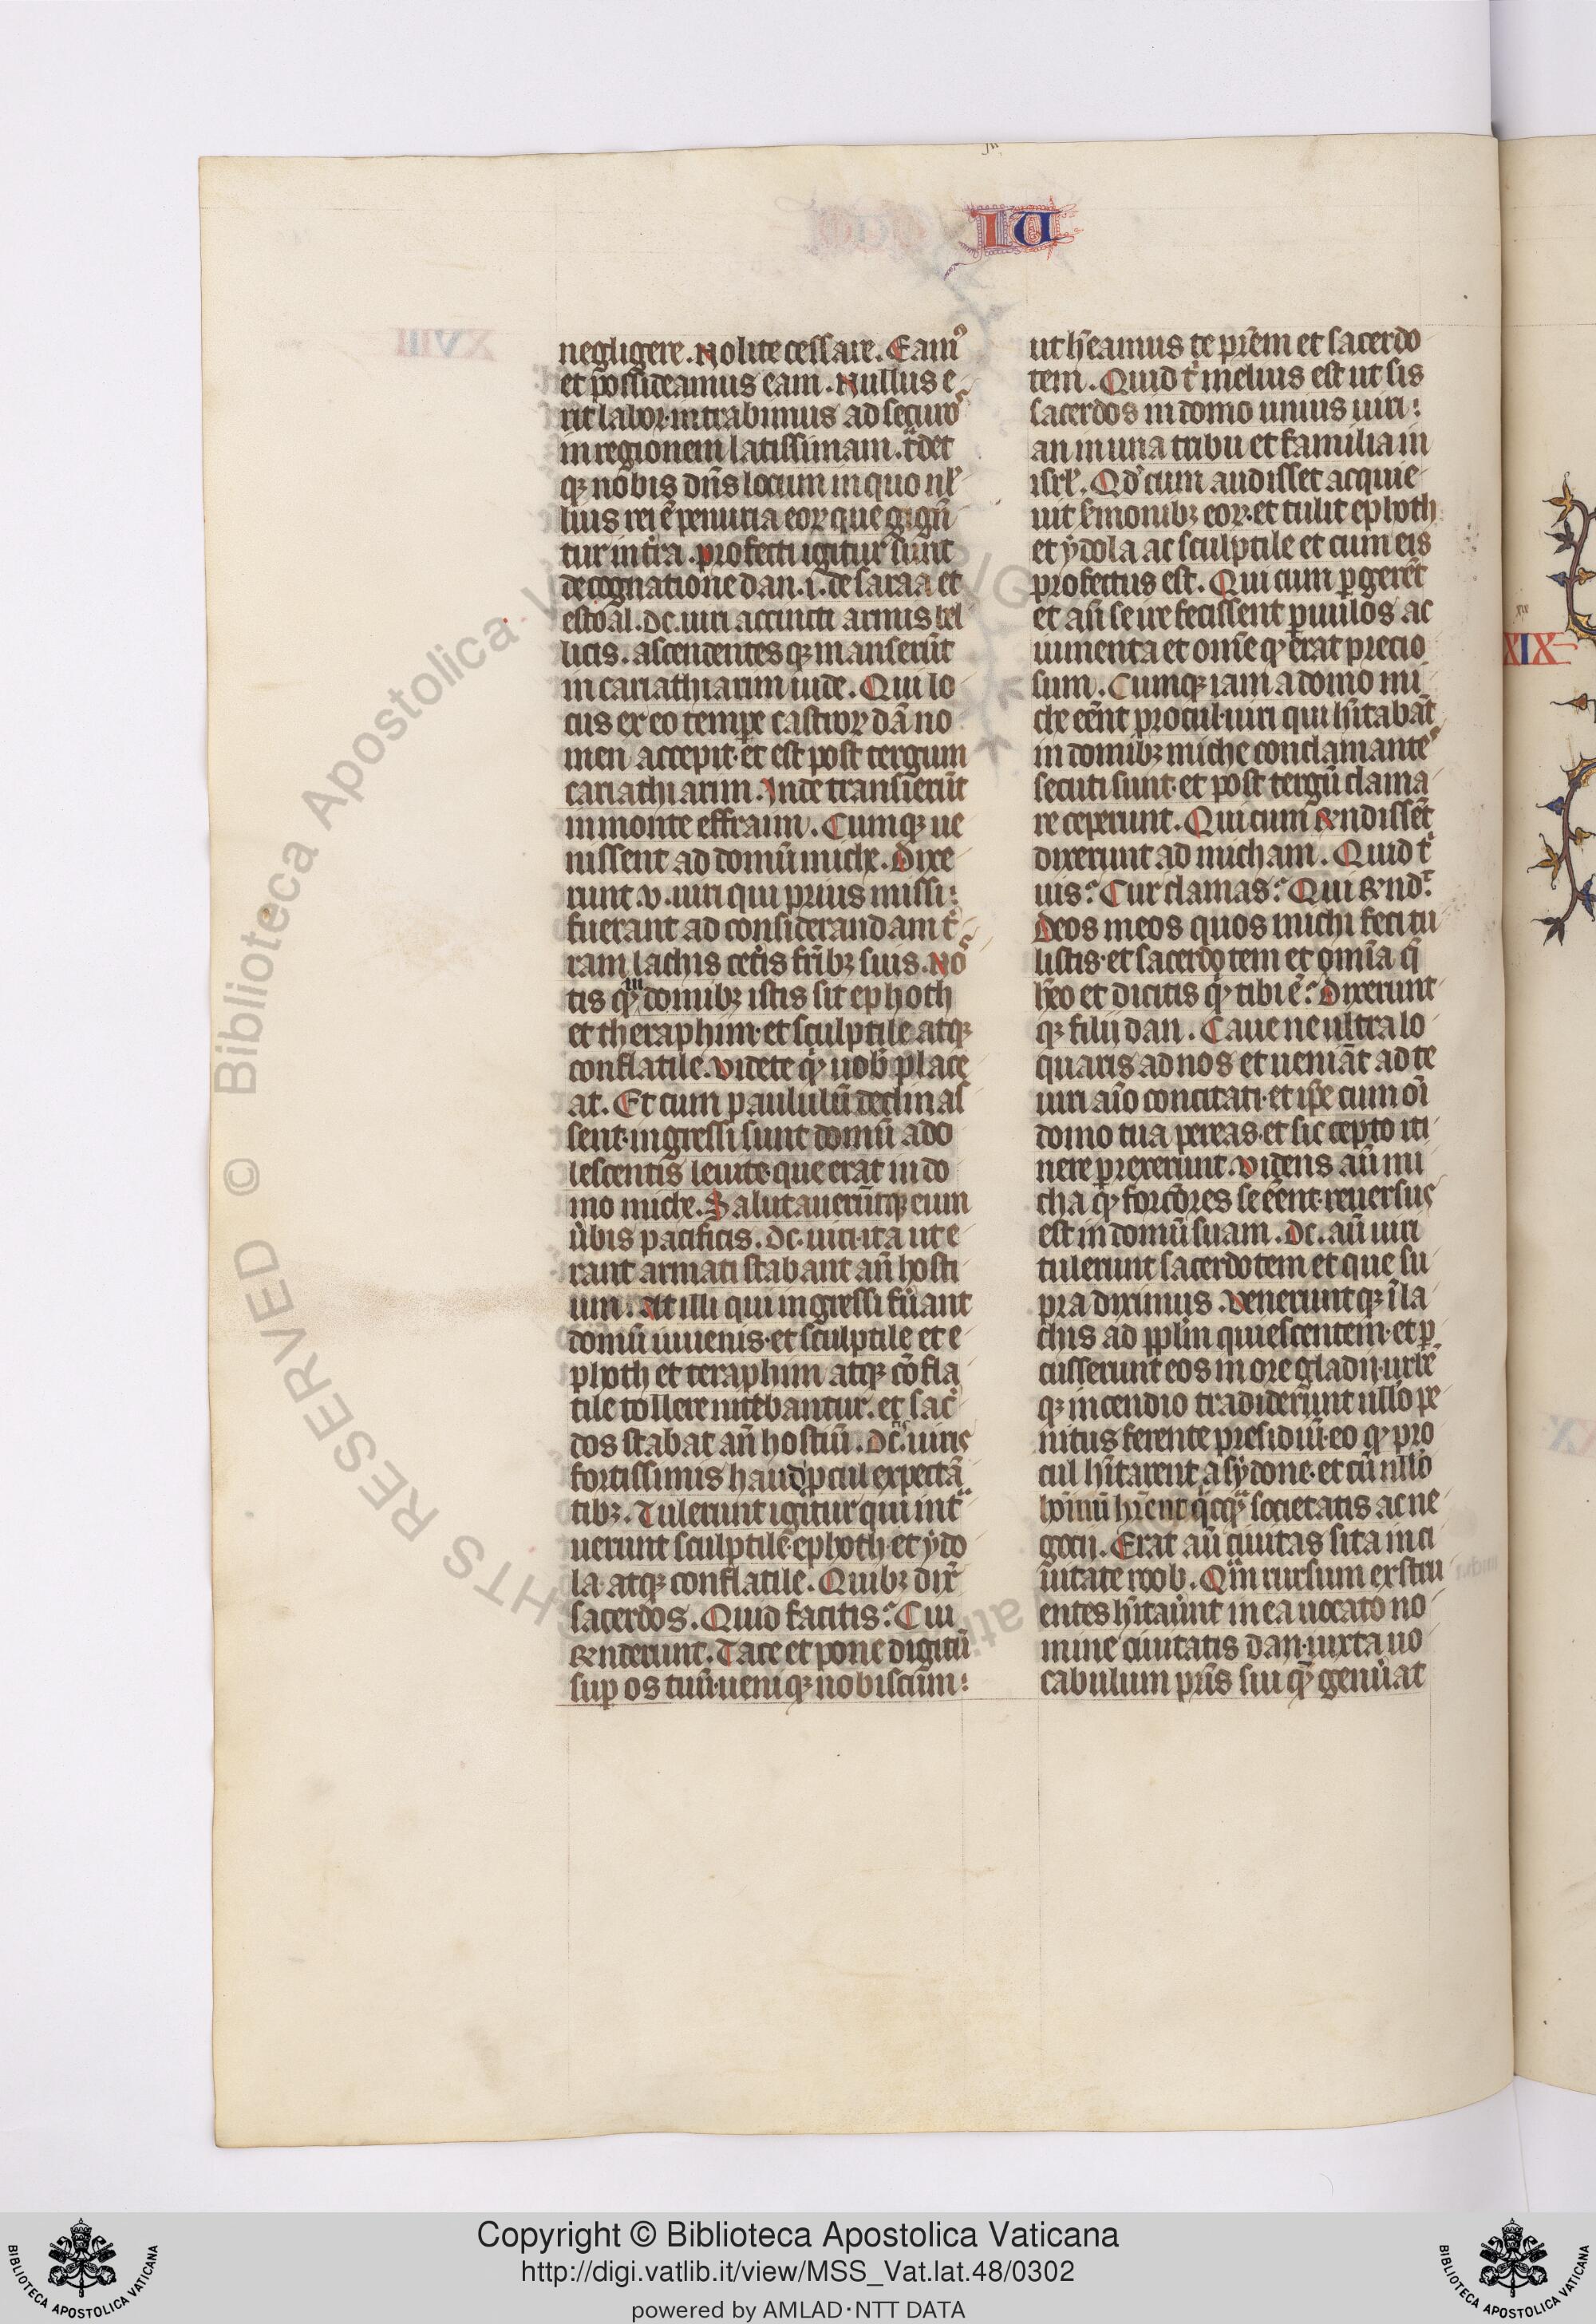 IU
negligere. Nolite cessare. Eamꝰ
et possideamus eam. Nullus e
rit labor. intrabimus ad securos
in regionem latissimam. t̾det
qꝫ nobis dn̄s locum in quo nł
lius rei ē penuria eoꝝ que gign̄
tur in t̾ra. Profecti igitur sunt
de cognatione dan. i. de saraa et
estoal. dc. uiri accincti armis bel
licis. ascendentesqꝫ manserūt
in cariathiarim iude. Qui lo
cus ex eo tempe castroꝝ dan no
men accepit. et est post tergum
cariathiarim. Inde transierūt
in monte effraim. Cumqꝫ ue
nissent ad domū miche. Dixe
runt .v. uiri qui prius missi
fuerant ad considerandam t̾
ram lachis cet̾is fr̄ibꝫ suis. Nos
tis qꝫ in domibꝫ istis sit ephoth
et theraphim. et sculptile atqꝫ
conflatile. Videte qͥd uob̄ place
at. Et cum paululū declinas
sent. ingressi sunt domū ado
lescentis leuite. que erat in do
mo miche. Salutauerūtqꝫ eum
ūbis pacificis. dc. uiri. ita ut e
rant armati stabant an̄ hosti
um. At illi qui ingressi fūant
domū iuuenis. et sculptile et e
photh et teraphim atqꝫ cōfla
tile tollere nitebantur. et sac̾
dos stabat an̄ hostiū. dc̄. uiris
fortissimis haud pcul expectā
tibꝫ. Tulerunt igitur qui int̾
uerunt sculptile. ephoth. et ydo
la. atqꝫ conflatile. Quibꝫ dix̄
sacerdos. Quid facitis? Cui
r̄nderunt. Tace et pone digitū
suꝑ os tuū. ueniqꝫ nobiscum:
ut hēamus te pr̄em et sacerdo
tem. Quid t̾ melius est ut sis
sacerdos in domo unius uiri:
an in una tribu et familia in
isrł. Qd̾ cum audisset acquie
uit s̾monibꝫ eoꝝ. et tulit ephoth
et ydola ac sculptile et cum eis
profectus est. Qui cum ꝑgerēt
et an̄ se ire fecissent ꝑuulos ac
iumenta et omē qd̾ erat precio
sum. Cumqꝫ iam a domo mi
che eēnt procul. uiri qui hītabāt
in domibꝫ miche conclamantes
secuti sunt. et post tergū clama
re ceperunt. Qui cum r̄ndissēt
dixerunt ad micham. Quid t̾
uis? Cur clamas? Qui r̄nd̾.
Deos meos quos michi feci tu
listis. et sacerdotem et omīa q̄
hēo et dicitis qd̾ tibi ē? Dixerunt
qꝫ filii dan. Caue ne ultra lo
quaris ad nos et ueniāt ad te
uiri aīo concitati. et ipse cum oī
domo tua pereas. et sic cepto iti
nere ꝑrexerunt. Videns aū mi
cha qd̾ forcōres se eēnt. reuersus
est in domū suam. Dc. aū uiri
tulerunt sacerdotem et que su
pra diximus. Veneruntqꝫ ī la
chis ad pplm̄ quiescentem. et ꝑ
cusserunt eos in ore gladii. urbē
qꝫ incendio tradiderunt nullo pe
nitus ferente presidiū. eo qd̾ pro
cul hītarent a sydone. et cū nullo
hoīnū hr̄ent qͥcqͣ societatis ac ne
gocii. Erat aū ciuitas sita in ci
uitate roob. Qͣm rursum exstru
entes hītaūnt in ea uocato no
mine ciuitatis dan. iuxta uo
cabulum pr̄is sui qꝫ genūat
XIX
Copyright © Biblioteca Apostolica Vaticana
http://digi.vatlib.it/view/MSS_Vat.lat.48/0302
powered by AMLAD·NTT DATA
BIBLIOTECA APOSTOLICA VATICANA
BIBLIOTECA APOSTOLICA VATICANA